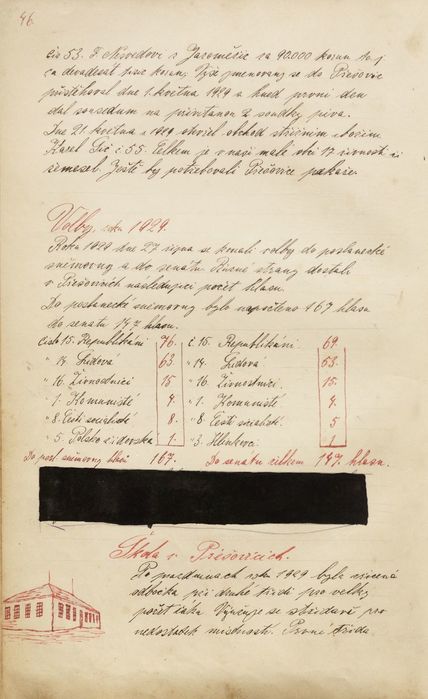 46.
čís 53. F. Nesvedovi z Jaroměřic za 90.000 korun to j.
za devadesát tisíc korun. Výše jmenovaný se do Příšovic
přistěhoval dne 1. května 1929 a hned první den
dal sousedum na přivítanou 2 soudky piva.
Dne 21. května 1929 otevřel obchod střižním zbožím
Karel Šic č. 55. Celkem je v naší malé obci 17 živností a
řemesel. Ještě by potřebovali Příšovice pekaře.
Volby, roku 1929.
Roku 1929 dne 27 října se konali volby do poslanecké
sněmovny a do senátu. Různé strany dostali
v Příšovicích následující počet hlasu.
Do poslanecké sněmovny bylo napočteno 167 hlasu
do senátu 147 hlasu.
číslo 15. Republikáni 76. č 15. Republikáni. 69.
" 14. Lidová 63. " 14. Lidová 53.
" 16. Živnostníci 15 " 16. Živnostníci. 15.
" 1. Komunisté 4 " 1. Komunisté 4.
" 8. Čeští socialisté 8. " 8. Čeští socialisté. 5
" 5. Polsko židovska 1. " 3. Hlinkovci 1
Do posl. sněmovny hlasů 167. Do senátu celkem 147 hlasu.
Škola v Příšovicích.
Po prázdninách roku 1929 byla zřízená
odbočka při druhé třídě pro velký
počet žáků. Vyučuje se střídavě pro
nedostatek místností. První třída